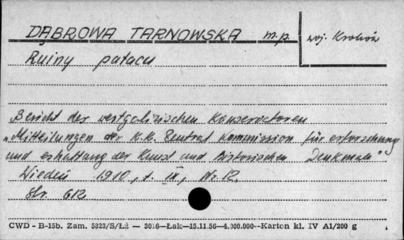 DĄBROWA TARNOWSKA m.p. woj. Kraków
Ruiny pałacu
Bericht der westgalizischen Konservatoren
"Mitteilungen der K.K. Zentral Kommission für erforschung
und erhaltung der Kunst und historischen Denkmale".
Wiedeń 1910, t. IX, Nr 12.
Str. 612
CWD - B-15b. Zam. 5323/S/Łż — 3016—Łak—15.11.56—4.000.000—Karton kl. IV A1/200 g